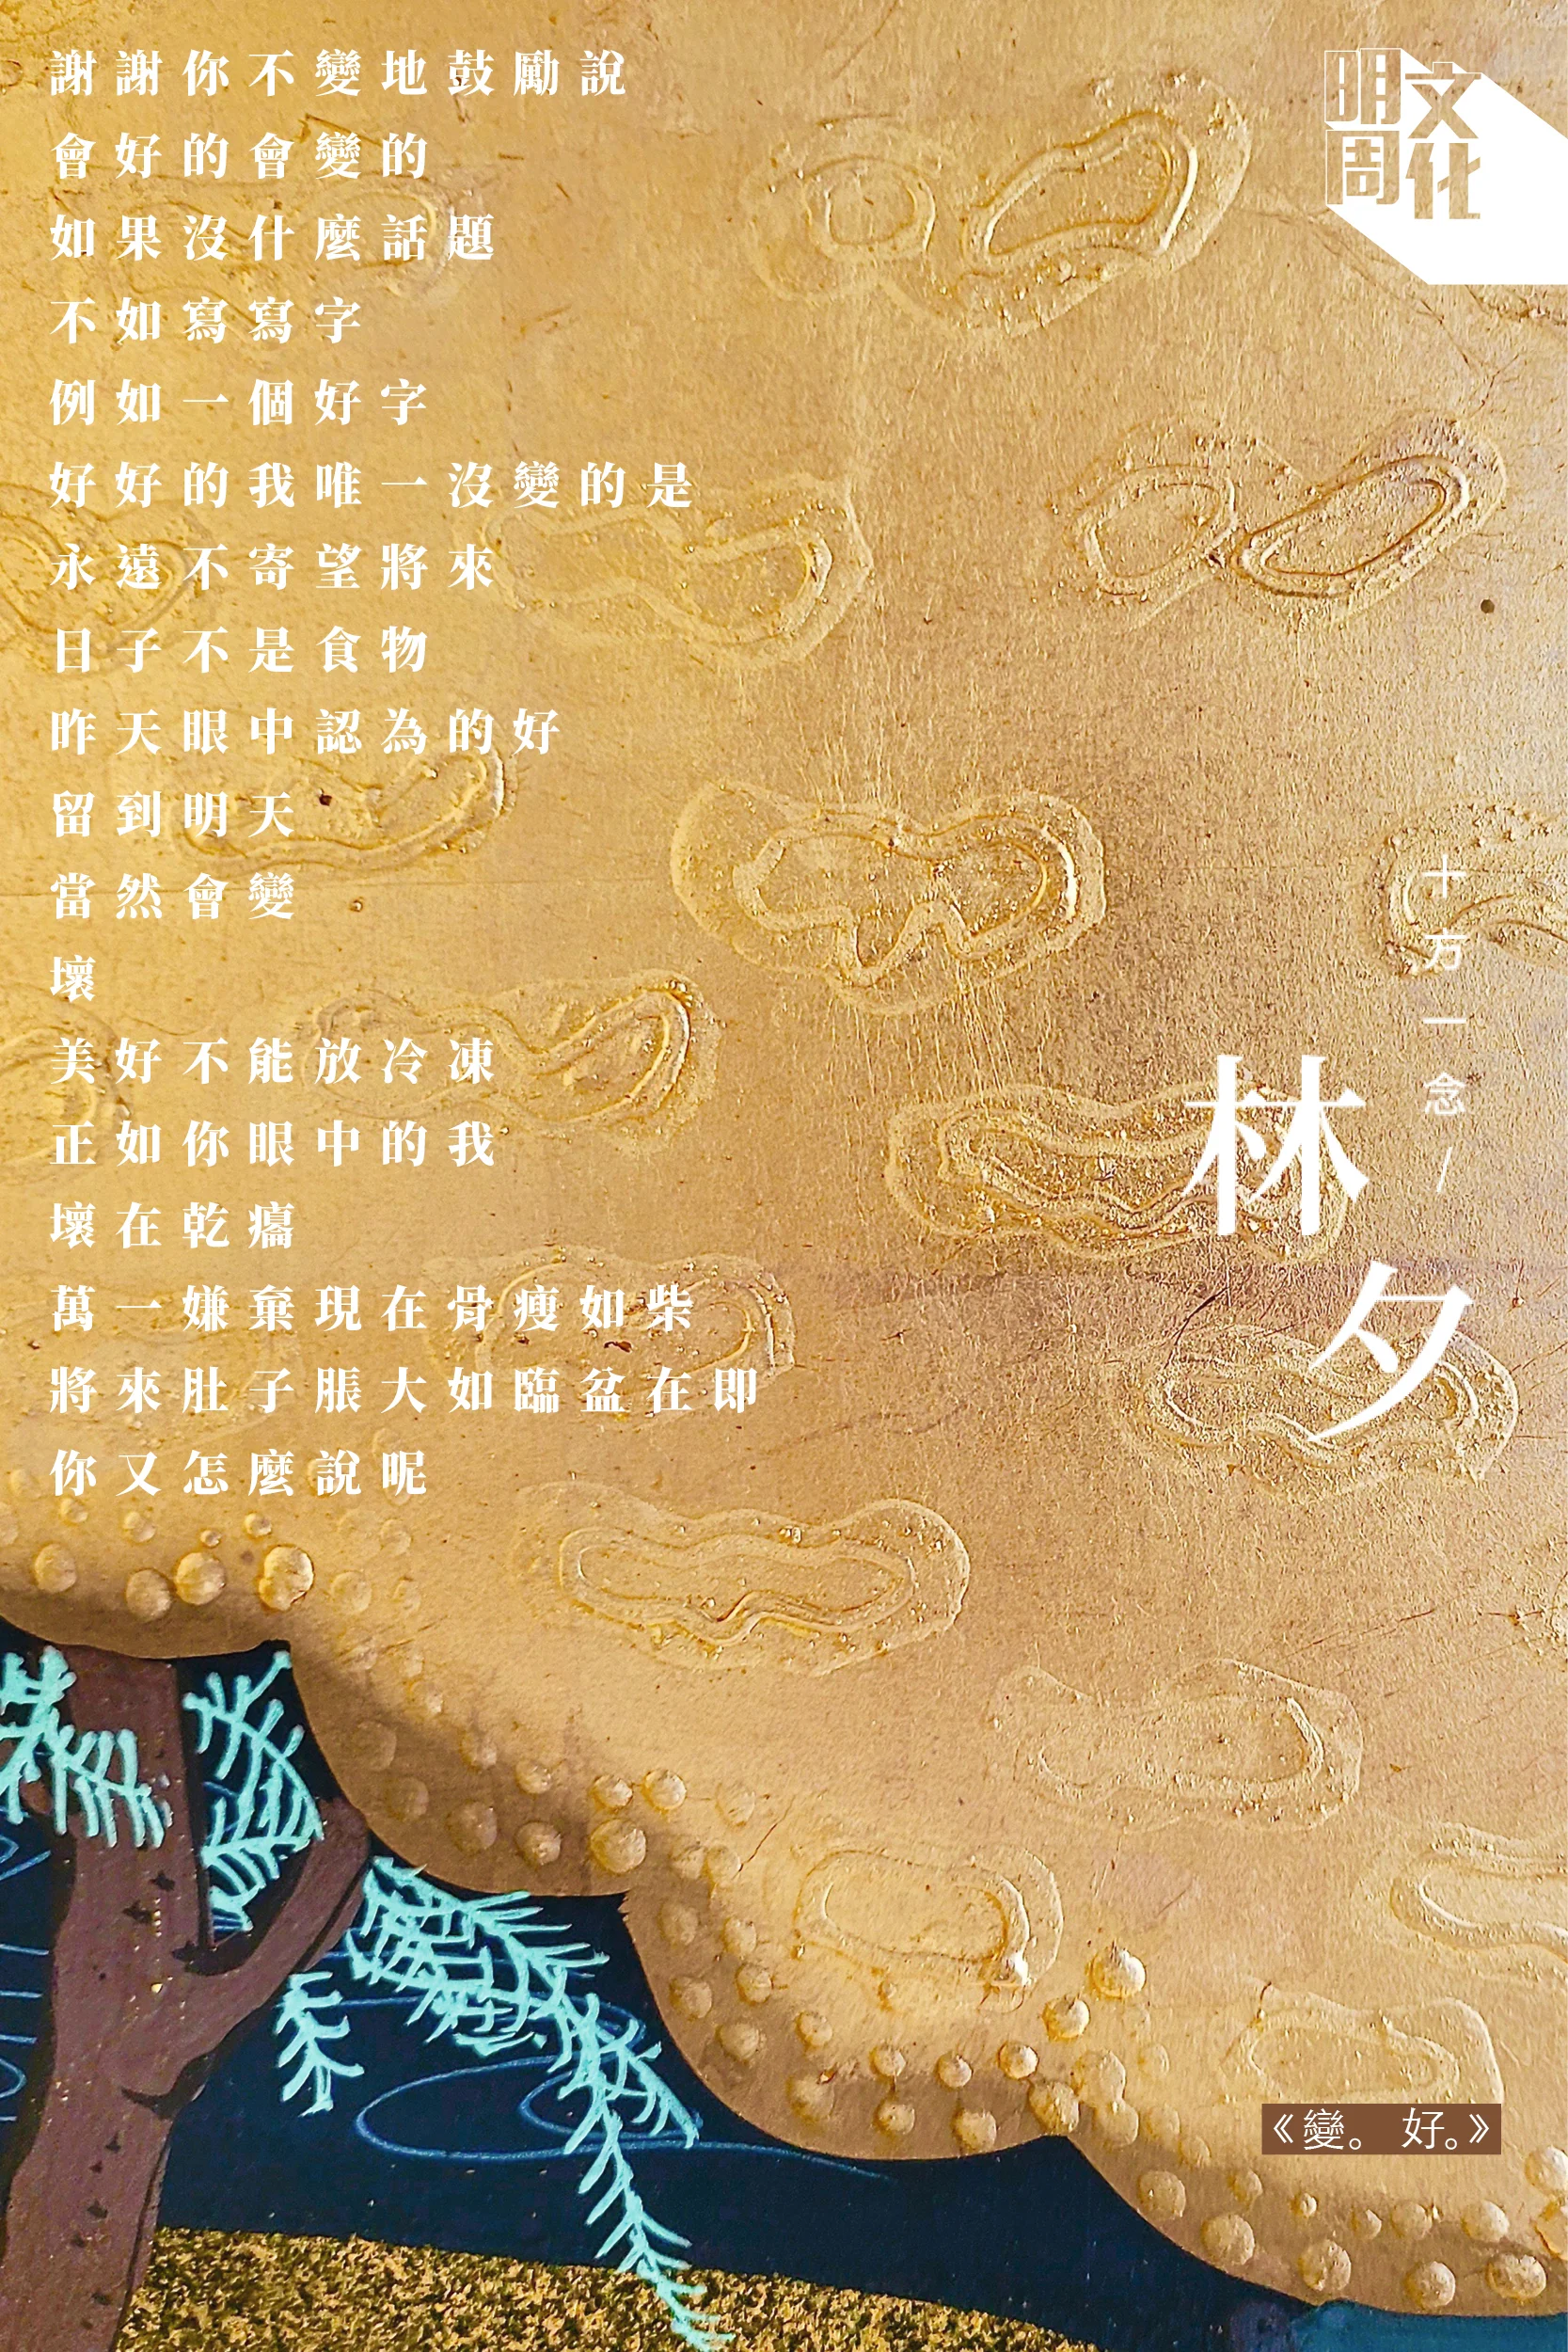 謝謝你不變地鼓勵說
會好的會變的
如果沒什麼話題
不如寫寫字
例如一個好字
好好的我唯一沒變的是
永遠不寄望將來
日子不是食物
昨天眼中認為的好
留到明天
當然會變
壞
美好不能放冷凍
正如你眼中的我
壞在乾癟
萬一嫌棄現在骨瘦如柴
將來肚子脹大如臨盆在即
你又怎麼說呢
明周文化
十方一念/
林夕
《變。 好。》